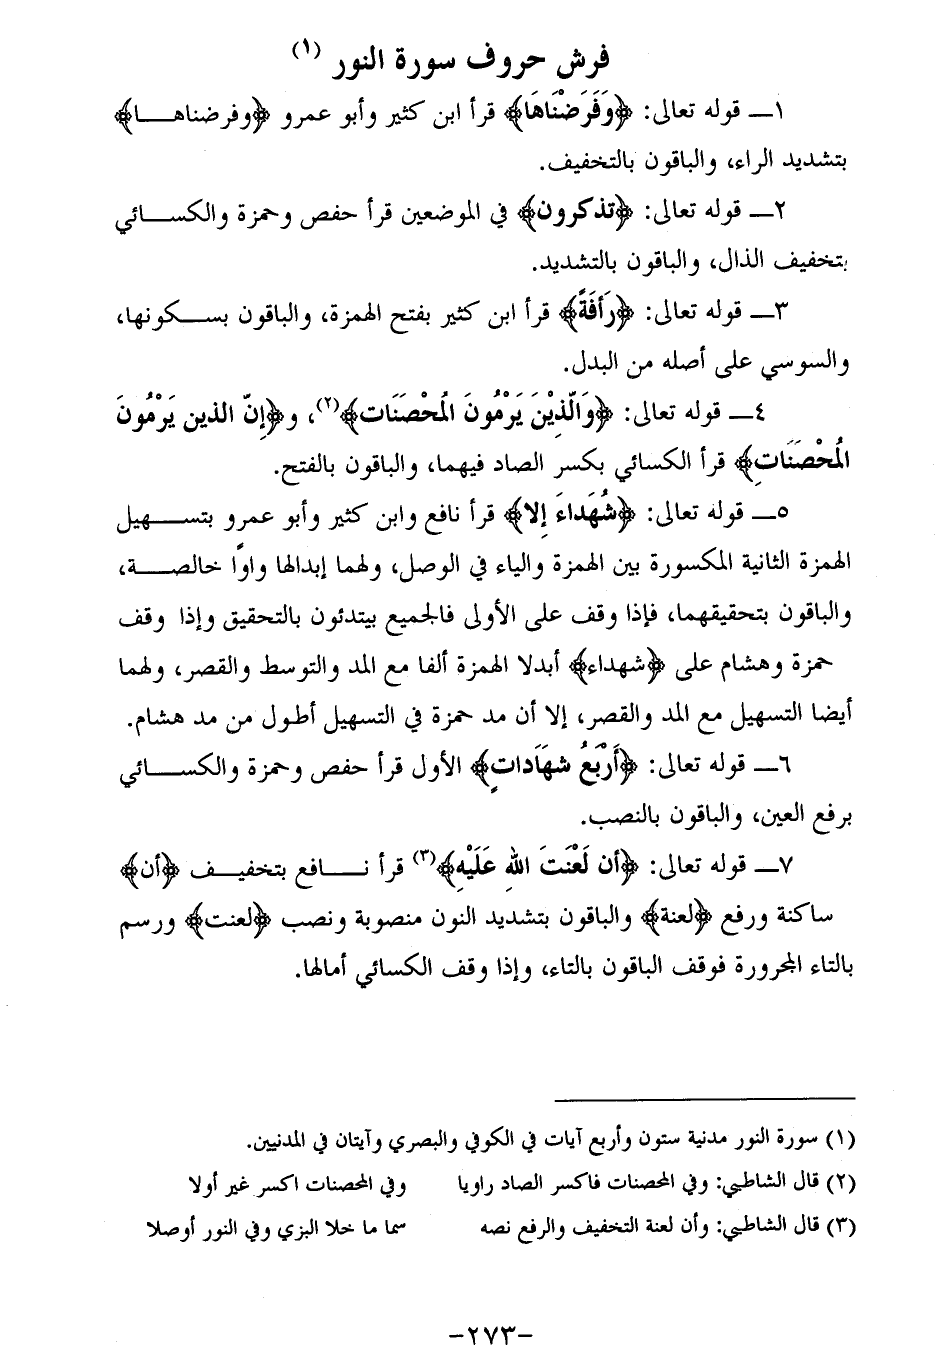 فرش حروف سورة النور (١)
١ــ قوله تعالى: ﴿وَفَرَضْنَاهَا﴾ قرأ ابن كثير وأبو عمرو ﴿وفرضناهـــا﴾
بتشديد الراء، والباقون بالتخفيف.
٢ــ قوله تعالى: ﴿تذكرون﴾ في الموضعين قرأ حفص وحمزة والكســـائي
بتخفيف الذال، والباقون بالتشديد.
٣ــ قوله تعالى: ﴿رَأفَةً﴾ قرأ ابن كثير بفتح الهمزة، والباقون بســـكونها،
والسوسي على أصله من البدل.
٤ــ قوله تعالى: ﴿وَالَّذِيْنَ يَرْمُونَ الْمُحْصَنَات﴾(٢)، و﴿إنّ الذين يَرْمُونَ
الْمُحْصَنَاتِ﴾ قرأ الكسائي بكسر الصاد فيهما، والباقون بالفتح.
٥ــ قوله تعالى: ﴿شُهَداءَ إِلا﴾ قرأ نافع وابن كثير وأبو عمرو بتســـهيل
الهمزة الثانية المكسورة بين الهمزة والياء في الوصل، ولهما إبدالها واوًا خالصـــة،
والباقون بتحقيقهما، فإذا وقف على الأولى فالجميع بيتدئون بالتحقيق وإذا وقف
حمزة وهشام على ﴿شهداء﴾ أبدلا الهمزة ألفا مع المد والتوسط والقصر، ولهما
أيضا التسهيل مع المد والقصر، إلا أن مد حمزة في التسهيل أطول من مد هشام.
٦ــ قوله تعالى: ﴿أَرْبَعُ شهَادَاتٍ﴾ الأول قرأ حفص وحمزة والكســـائي
برفع العين، والباقون بالنصب.
٧ــ قوله تعالى: ﴿أن لَعْنَتَ اللهِ عَلَيْهِ﴾(٣) قرأ نـــافع بتخفيـف ﴿أن﴾
ساكنة ورفع ﴿لعنة﴾ والباقون بتشديد النون منصوبة ونصب ﴿لعنت﴾ ورسم
بالتاء المجرورة فوقف الباقون بالتاء، وإذا وقف الكسائي أمالها.
(١) سورة النور مدنية ستون وأربع آيات في الكوفي والبصري وآيتان في المدنيين.
(٢) قال الشاطبي: وفي المحصنات فاكسر الصاد راويا وفي المحصنات اكسر غير أولا
(٣) قال الشاطبي: وأن لعنة التخفيف والرفع نصه سما ما خلا البزي وفي النور أوصلا
-٢٧٣-